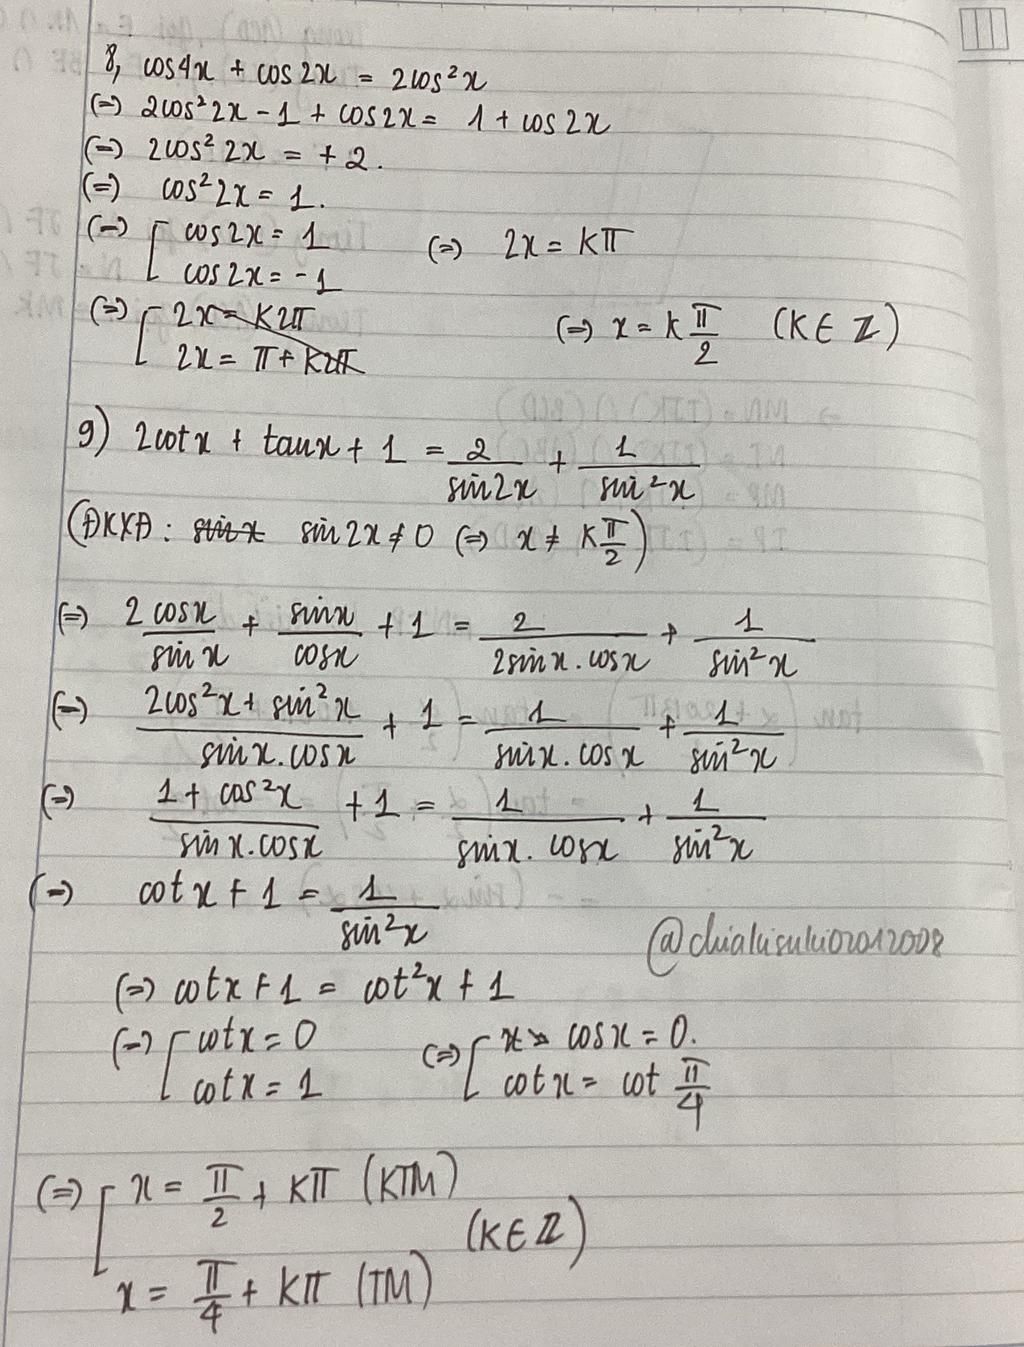 8, cos4x + cos2x = 2cos²x
(=) 2cos²2x - 1 + cos2x = 1 + cos2x
(=) 2cos²2x = +2.
(=) cos²2x = 1.
(=) [ cos2x = 1 (=) 2x = kπ
cos2x = -1
(=) [ 2x = k2π (=) x = k π/2 (k ∈ Z)
2x = π + k2π
9) 2cotx + tanx + 1 = 2/sin2x + 1/sin²x
(ĐKXĐ: sinx sin2x ≠ 0 (=) x ≠ kπ/2)
(=) 2 cosx/sinx + sinx/cosx + 1 = 2/2sinx.cosx + 1/sin²x
(=) 2cos²x + sin²x/sinx.cosx + 1 = 1/sinx.cosx + 1/sin²x
(=) 1 + cos²x/sinx.cosx + 1 = 1/sinx.cosx + 1/sin²x
(=) cotx + 1 = 1/sin²x
@chiakisuki02012008
(=) cotx + 1 = cot²x + 1
(=) [ cotx = 0 (=) [ cosx = 0.
cotx = 1 cotx = cot π/4
(=) [ x = π/2 + kπ (KTM)
(k ∈ Z)
x = π/4 + kπ (TM)